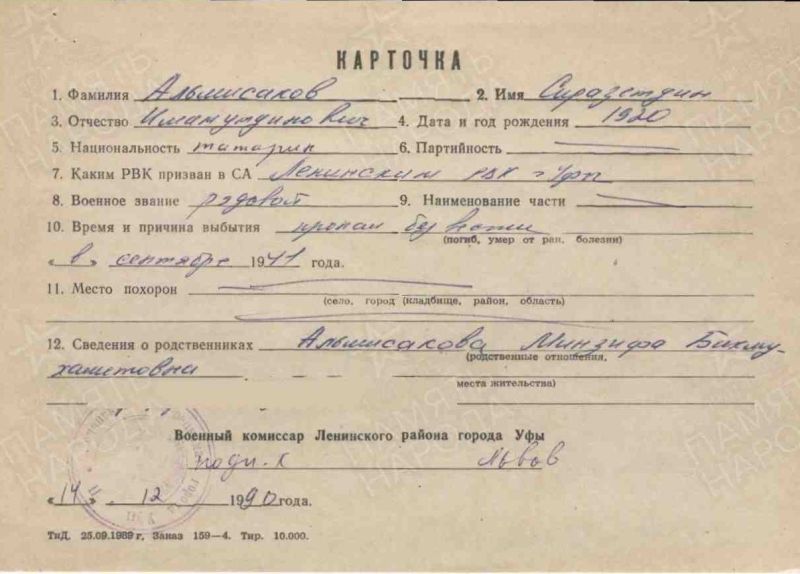 КАРТОЧКА
1. Фамилия Альмисаков 2. Имя Сиразетдин
3. Отчество Имамутдинович 4. Дата и год рождения 1920
5. Национальность татарин 6. Партийность
7. Каким РВК призван в СА Ленинским РВК г Уфы
8. Военное звание рядовой 9. Наименование части
10. Время и причина выбытия пропал без вести
(погиб, умер от ран, болезни)
« в » сентябре 1941 года.
11. Место похорон
(село, город (кладбище, район, область)
12. Сведения о родственниках Альмисакова Минзифа Бикму-
(родственные отношения,
хаметовна
места жительства)
Военный комиссар Ленинского района города Уфы
подп-к Львов
« 14 » 12 1990 года.
ТиД. 25.09.1989 г, Заказ 159—4. Тир. 10.000.